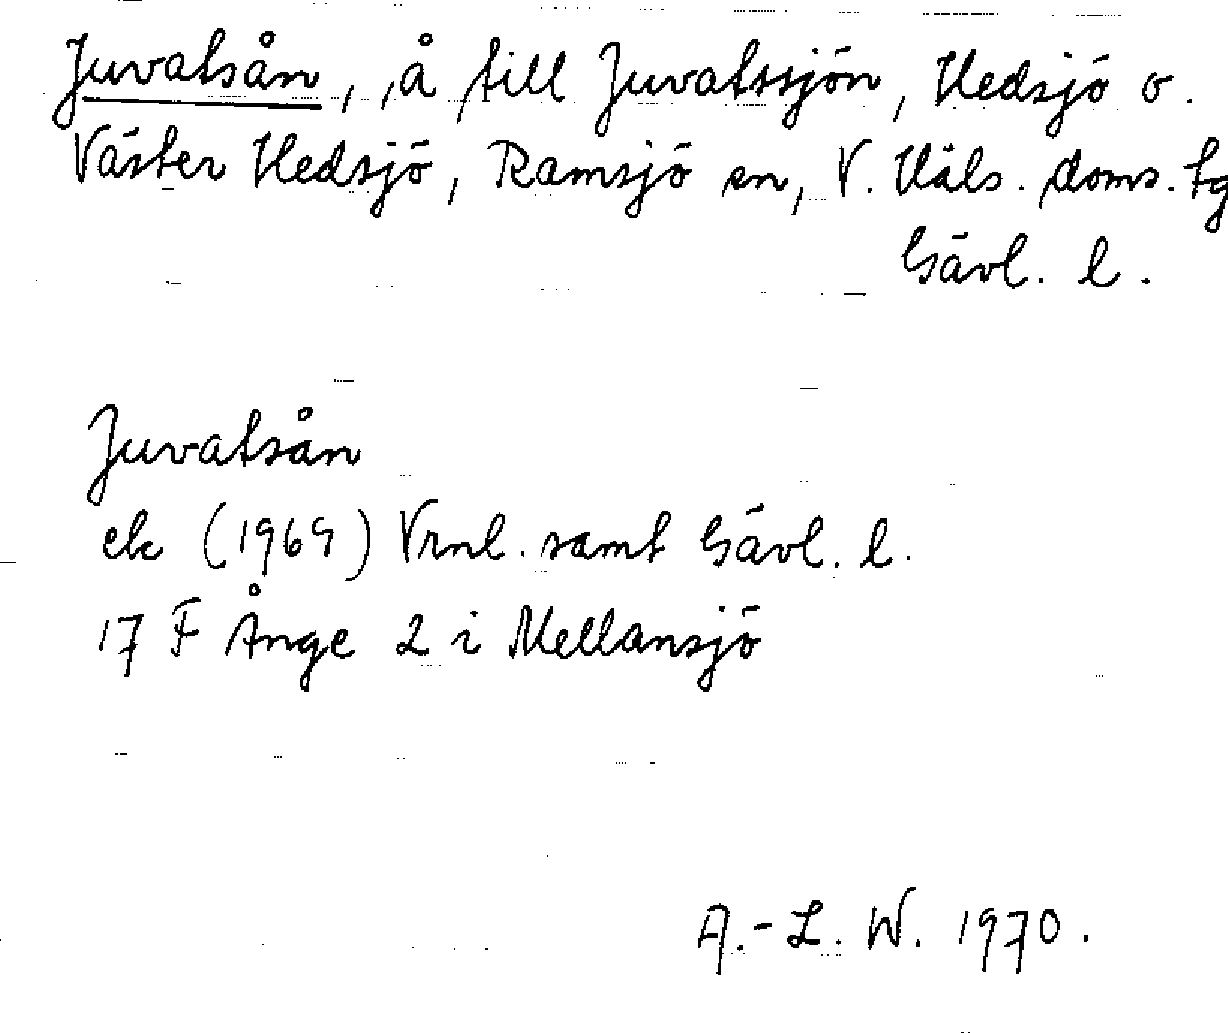 Juvatsån, å till Juvatssjön, Hedsjö o.
Väster Hedsjö, Ramsjö sn, V. Häls. doms. tg
Gävl. l.
Juvatsån
ek (1969) Vrnl. samt Gävl. l.
17 F Ånge 2 i Mellansjö
A.-L. W. 1970.